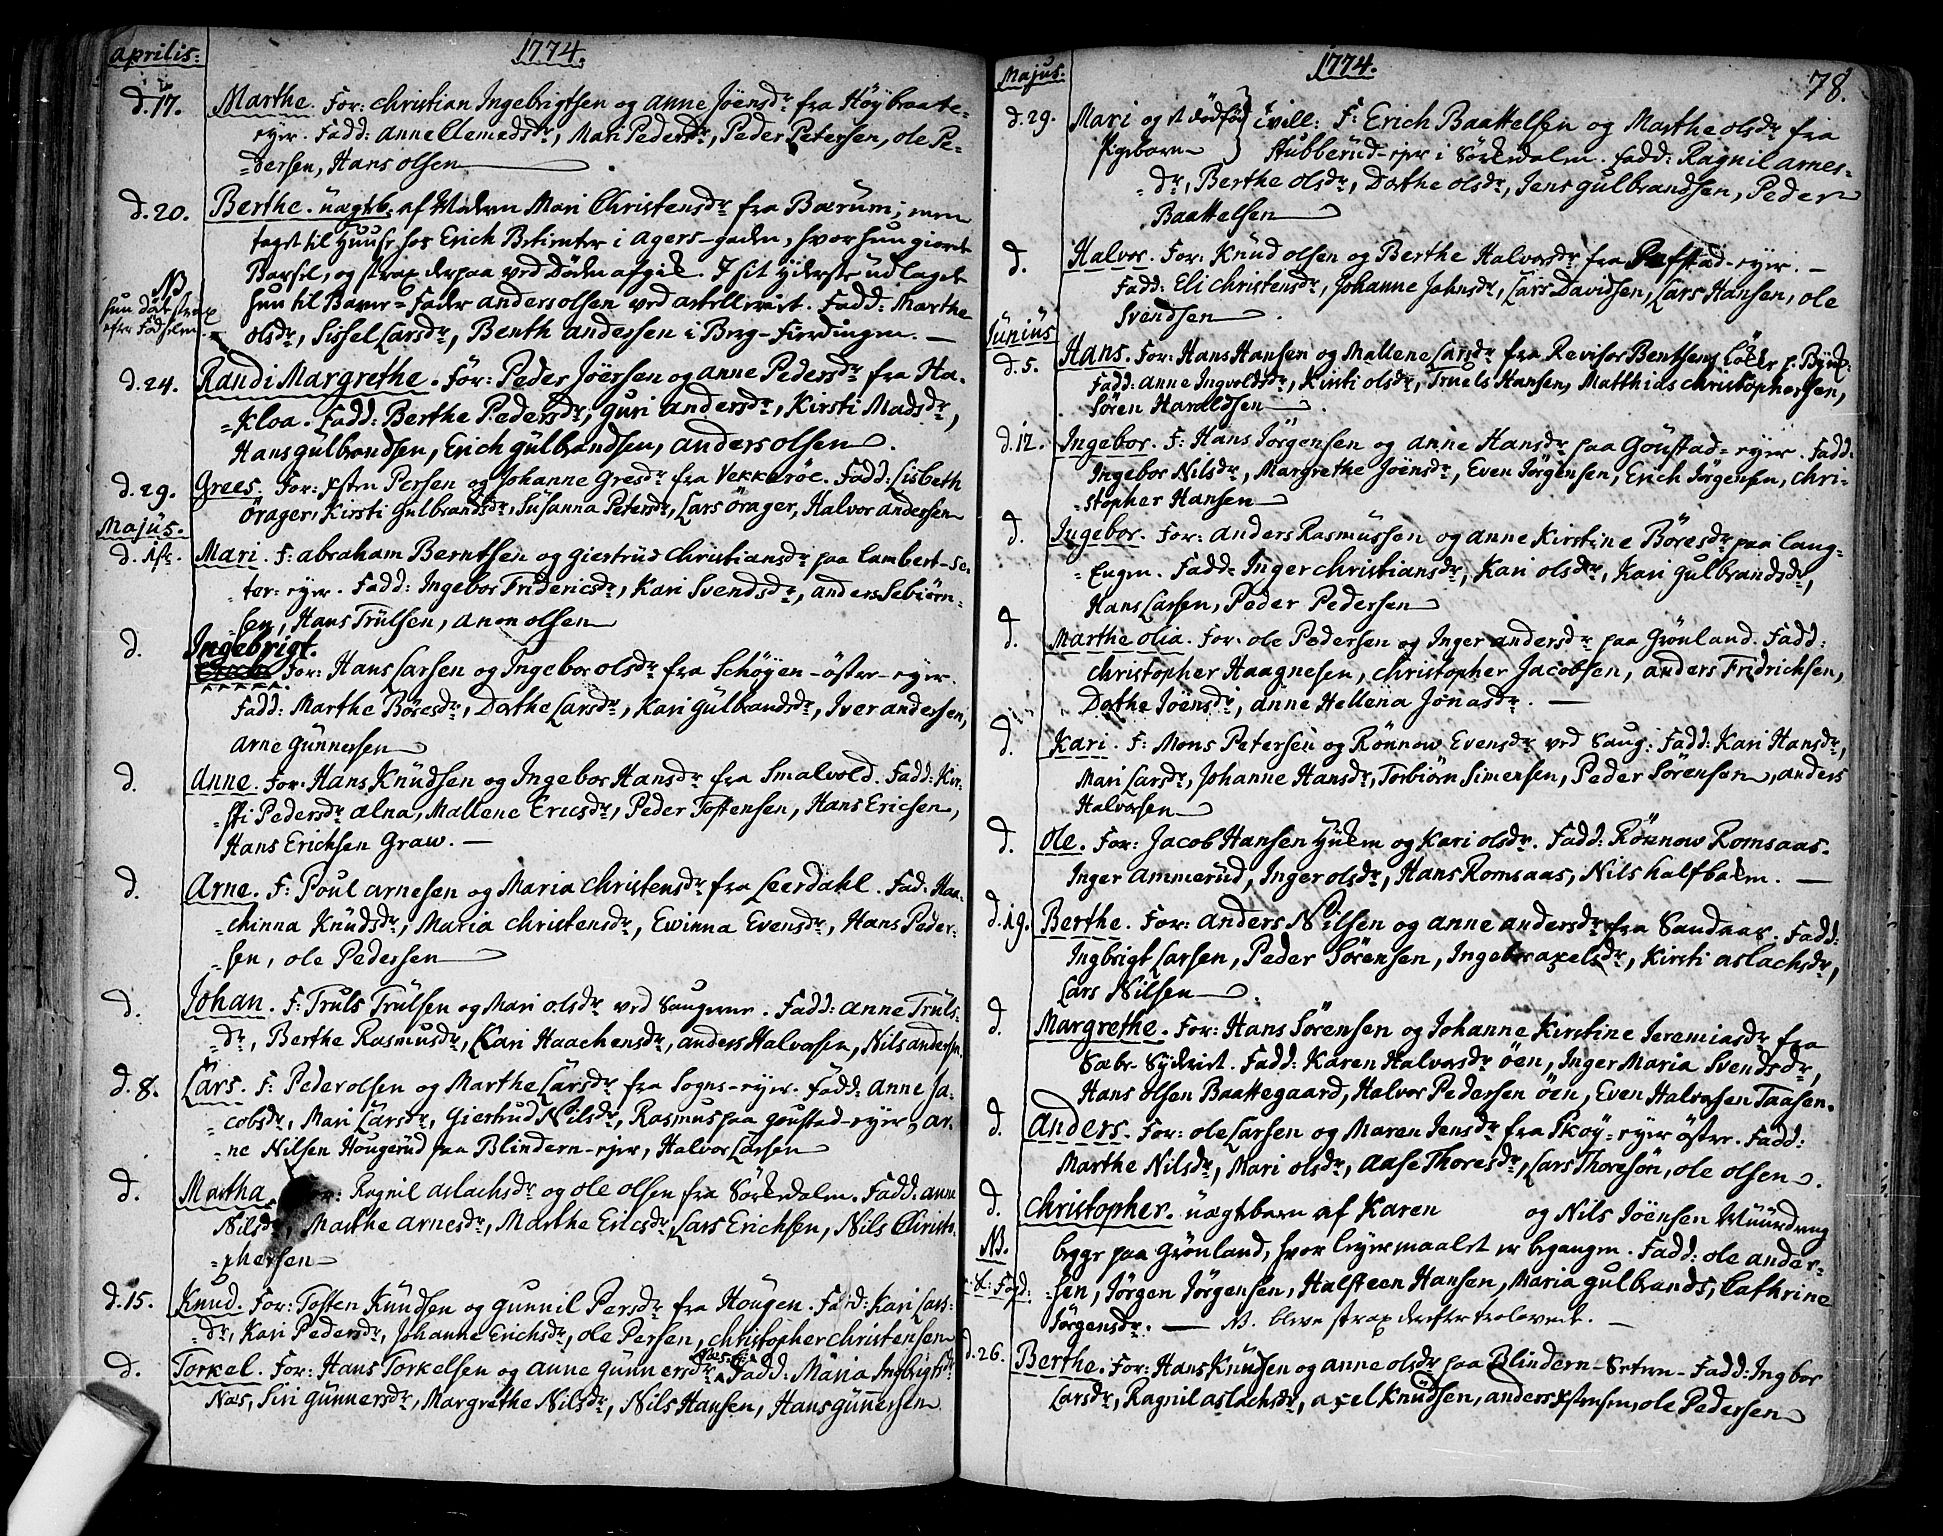 aprilis:
1774.
d. 17. Marthe. For: Christian Ingebrigtsen og anne Jöensdr fra Höybraate-
eyer. Fadd: anne Clemedsdr, Mari Pedersdr, Peder Petersen, ole Pe-
=dersen, Hans olsen
d. 20. Berthe. uægtb. af Moderen Mari Christensdr fra Bærum; men
taget til Huuse hos Erich Betienter i Agers-gaden, hvor hun giorde
Barsel, og strax derpaa ved Döden afgik. I sit Yderste udlagde
NB
hun döde strax
efter Födselen.
hun til Barne=Fader anders olsen ved artelleriet. Fadd: Marthe
olsdr, Sissel Larsdr, Benth andersen i Berg-Fierdingen.
d. 24. Randi Margrethe. For: Peder Jöersen og anne Pedersdr fra Ha-
=kloa. Fadd: Berthe Pedersdr, Guri andersdr, Kirsti Madsdr,
Hans Gulbrandsen, Erich Gulbrandsen, anders olsen.
d. 29. Grees. For: Esten Persen og Johanne Gresdr fra Vekkeröe. Fadd: Lisbeth
Örager, Kirsti Gulbrandsdr, Susanna Petersdr, Lars Örager, Halvor andersen
Majus.
d. 1ste. Mari. F: abraham Berntsen og Giertrud Christiansdr paa Lambert-Se-
=ter-eyer. Fadd: Ingebor Fridericsdr, Kari Svendsdr, anders Sebiörn-
=sen, Hans Trulsen, anon olsen
d. Ingebrigt.
For: Hans Larsen og Ingebor olsdr fra Schöyen-öster-eyer.
Fadd: Marthe Böresdr, Dorthe Larsdr, Kari Gulbrandsdr, Iver andersen,
Arne Gunnersen
d. Anne. For: Hans Knudsen og Ingebor Hansdr fra Smalvold. Fadd: Kir-
=sti Pedersdr alna, Mallene Ericsdr, Peder Tostensen, Hans Ericsen,
Hans Erichsen Graw.
d. Arne. F: Poul arnesen og Maria Christensdr fra Leerdahl. Fad: Haa-
=chinna Knudsdr, Maria Christensdr, Ewinna Evensdr, Hans Peder-
=sen, ole Pedersen
d. Johan. F: Truls Trulsen og Mari olsdr ved Saugene. Fadd: Anne Truls-
=dr, Berthe Rasmusdr, Kari Haachensdr, anders Halvorsen, Nils andersen.
d. 8. Lars. F: Peder olsen og Marthe Larsdr fra Sogns-eyer. Fadd: Anne Ja-
=cobsdr, Mari Larsdr, Giertrud Nilsdr, Rasmus paa Goustad-eyer, Ar-
=ne Nilsen Hougerud paa Blindern-ejer, Halvor Larsen
d. Martha. For: Ragnil aslachsdr og ole olsen fra Sörkedalen. Fadd: anne
Nilsdr, Marthe Arnesdr, Marthe Ericsdr, Lars Erichsen, Nils Christo-
=phersen
d. 15. Knud. For: Tosten Knudsen og Gunnil Persdr fra Hougen. Fadd: Kari Lars-
=dr, Kari Pedersdr, Johanne Erichsdr, ole Persen, Christopher Christensen
d. Torkel. For: Hans Torkelsen og anne Gunnersdr. Fadd: Maria Ingbrigtsdr
Næs, Siri Gunnersdr, Margrethe Nilsdr, Nils Hansen, Hans Gunnersen
Majus.
1774.
78.
d. 29. Mari og et dödföd
Pigebarn
Tvill: F: Erich Baattelsen og Marthe olsdr fra
Stubberud-ejer i Sörkedalen. Fadd: Ragnil Arnes-
=dr, Berthe olsdr, Dorthe olsdr, Jens Gulbrandsen, Peder
Baattelsen
d. Halvor. For: Knud olsen og Berthe Halvorsdr fra -eyer.
Fadd: Eli Christensdr, Johanne Johnsdr, Lars Davidsen, Lars Hansen, ole
Svendsen
Junius
d. 5. Hans. For: Hans Hansen og Mallene Larsdr fra Revisor Bentsens Löcke p. Byen.
Fadd: Anne Ingvoldsdr, Kirsti olsdr, Truels Hansen, Matthias Christophersen,
Sören Haraldsen
d. 12. Ingebor. F: Hans Jörgensen og Anne Hansdr paa Goustad-eyer. Fadd:
Ingebor Nilsdr, Margrethe Jöensdr, Even Jörgensen, Erich Jörgensen, Chri-
=stopher Hansen
d. Ingebor. For: Anders Rasmussen og Anne Kirstine Böresdr paa Lang-
=Engen. Fadd: Inger Christiansdr, Kari olsdr, Kari Gulbrandsdr,
Hans Larsen, Peder Pedersen
d. Marthe olia. For: ole Pedersen og Inger andersdr paa Grönland. Fadd:
Christopher Haagnesen, Christopher Jacobsen, anders Fridrichsen,
Dorthe Jöensdr, Anne Hellena Jonasdr.
d. Kari. F: Mons Petersen og Rönnow Evensdr ved Saug: Fadd: Kari Hansdr,
Mari Larsdr, Johanne Hansdr, Torbiörn Simensen, Peder Sörensen, anders
Halvorsen
d. Ole. For: Jacob Hansen og Kari olsdr. Fadd: Rönnow Romsaas.
Inger Ammerud, Inger olsdr, Hans Romsaas, Nils Kalfbaken.
d. 19. Berthe. For: Anders Nilsen og anne andersdr fra Sandaas. Fadd:
Ingbrigt Larsen, Peder Sörensen, Ingebor axelsdr, Kirsti aslachsdr,
Lars Nilsen
d. Margrethe. For: Hans Sörensen og Johanne Kirstine Jeremiasdr fra
Sæbe-Syderiet. Fadd: Karen Halvorsdr öen, Inger Maria Svendsdr,
Hans Olsen Baattegaard, Halvor Pedersen öen, Even Halvorsen Taasen.
d. Anders. For: ole Larsen og Maren Jensdr fra Skoy-eyer öster. Fadd:
Marthe Nilsdr, Mari olsdr, Aase Thoresdr, Lars Thoresön, ole olsen.
d. Christopher. uægtbarn af Karen og Nils Jöensen Muurdreng
NB.
begge paa Grönland, hvor leyermaalet er begangen. Fadd: ole ander-
=sen, Jörgen Jörgensen, Halsteen Hansen, Maria Gulbrands, Cathrine
Jörgensdr. NB. bleve strax derefter trolovede.
d. 26. Berthe. For: Hans Knudsen og anne olsdr paa Blindern-Seteren. Fadd: Ingbor
Larsdr, Ragnil aslachsdr, axel Knudsen, anders Estensen, ole Pedersen